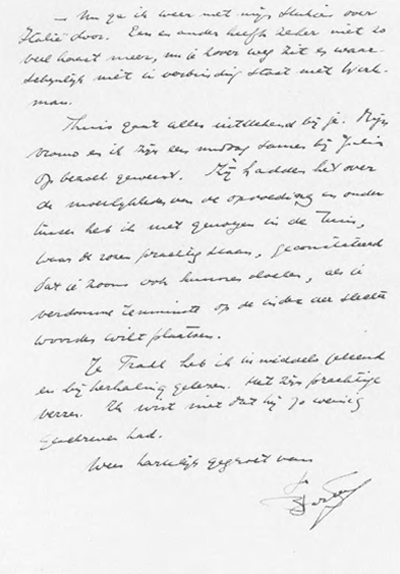 — Nu ga ik weer met mijn studie over
Italië door. Een en ander heeft zeker niet zo
veel haast meer, nu je zover weg zit en waar-
schijnlijk niet in verbinding staat met Werk-
man.
Thuis gaat alles uitstekend bij je. Mijn
vrouw en ik zijn een middag samen bij
op bezoek geweest. Wij hadden het over
de moeilijkheden van de opvoeding en onder
tussen heb ik met genoegen in de tuin,
waar de rozen prachtig staan, geconstateerd
dat je zoons ook kunnen vloeken, als je
verdomme tenminste op de index der slechte
woorden wilt plaatsen.
Je Trakl heb ik inmiddels geleend
en bij herhaling gelezen. Het zijn prachtige
verzen. Ik wist niet dat hij zo weinig
geschreven had.
Wees hartelijk gegroet van